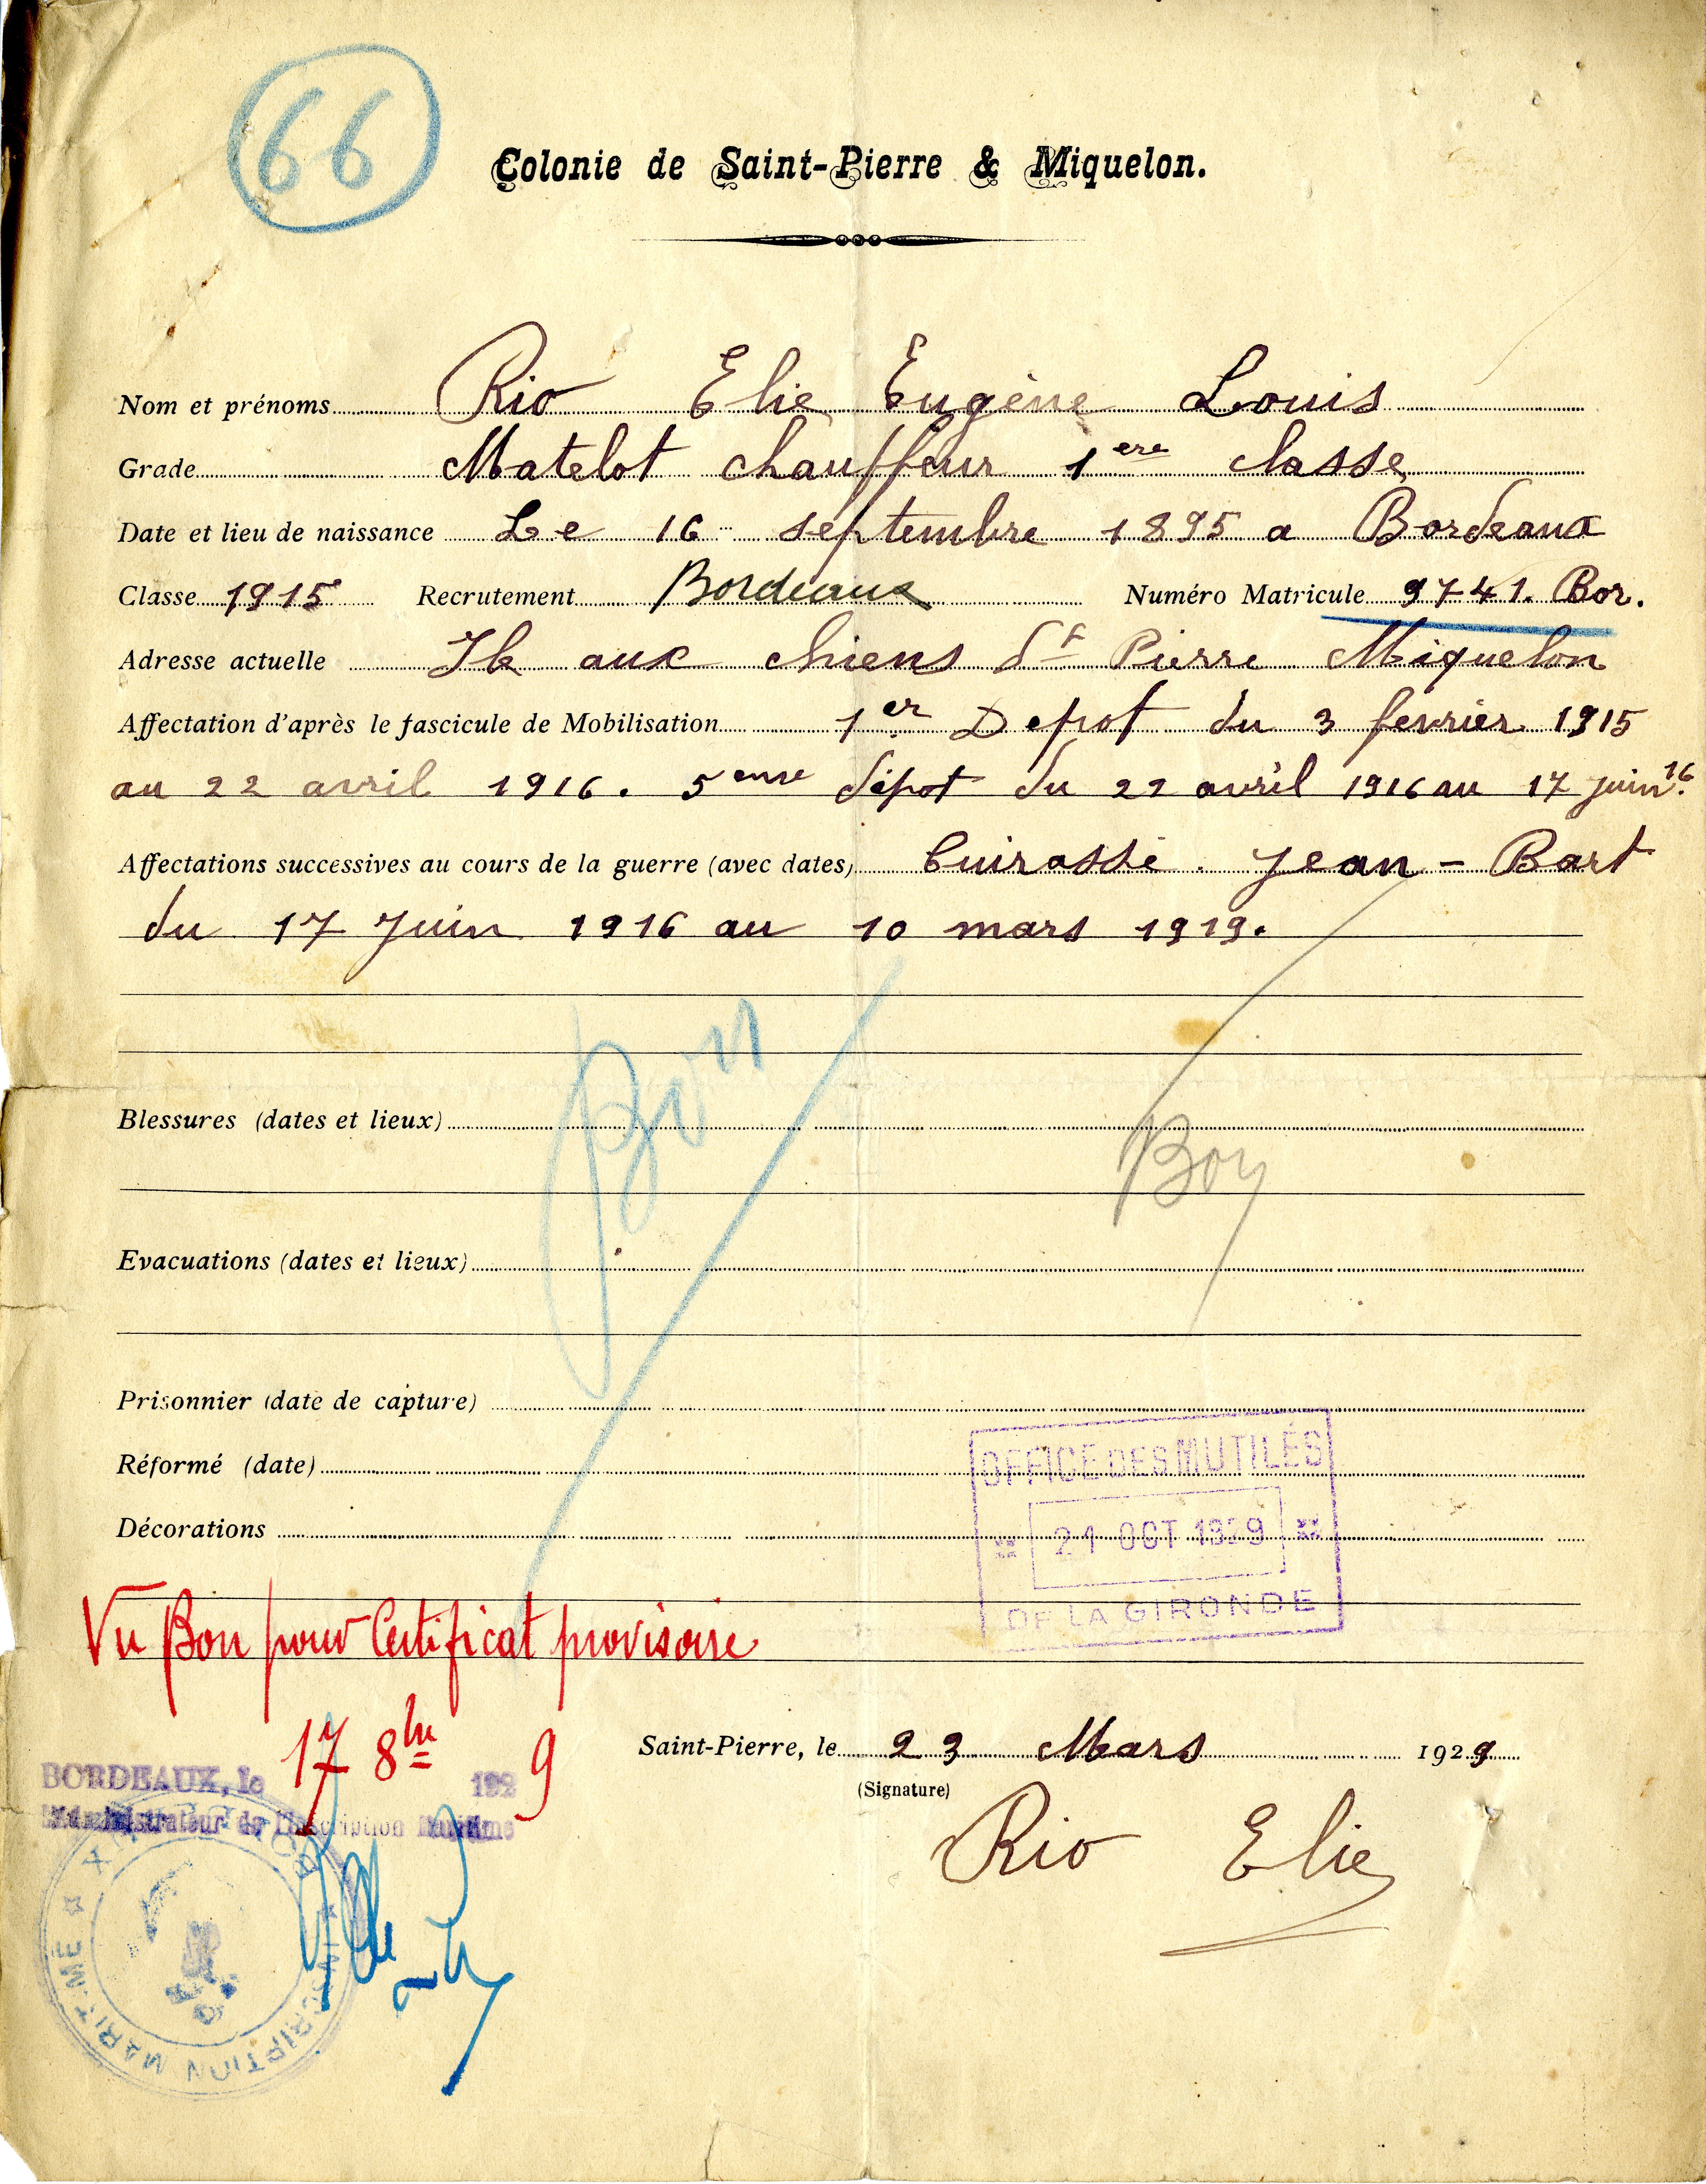 66
Colonie de Saint-Pierre & Miquelon.
Nom et prénoms Rio Elie Eugène Louis
Grade Matelot chauffeur 1ere classe
Date et lieu de naissance Le 16 septembre 1895 a Bordeaux
Classe 1915 Recrutement Bordeaux Numéro Matricule 9741. Bor.
Adresse actuelle Ile aux chiens St Pierre Miquelon
Affectation d'après le fascicule de Mobilisation 1er Depot du 3 fevrier 1915
au 22 avril 1916. 5eme dépot du 22 avril 1916 au 17 juin 16.
Affectations successives au cours de la guerre (avec dates) Cuirassé. Jean-Bart
du 17 Juin 1916 au 10 mars 1919.
Bon
Blessures (dates et lieux)
Bon
Evacuations (dates et lieux)
Prisonnier (date de capture)
OFFICE DES MUTILÉS
Réformé (date)
Décorations
21 OCT 1929
DE LA GIRONDE
Vu Bon pour Certificat provisoire
17 8bre
Saint-Pierre, le 23 Mars 1929
BORDEAUX, le 192 9
(Signature)
L'Administrateur de l'Inscription Maritime
Rio Elie
INSCRIPTION MARITIME